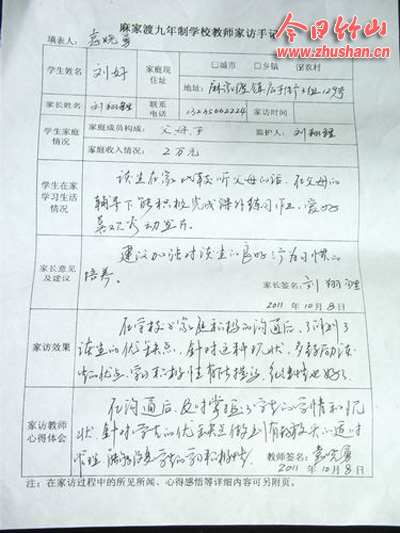 今日竹山
www.zhushan.cn
麻家渡九年制学校教师家访手记
填表人：袁晓勇
学生姓名 刘好 家庭现住址 □城市 □乡镇 ☑农村
地址：麻家渡镇 组129号
家长姓名 刘翔 联系电话 13245062224 家访时间
学生家庭情况 家庭成员构成：父母子 监护人：刘翔
家庭收入情况：2万元
学生在家学习生活情况 该生在家比较听父母的话，在父母的
辅导下能积极完成课外练习作业，爱好
家长意见及建议 建议加强对该生的良好行为习惯的
培养。
家长签名：刘翔
2011年10月8日
家访效果 在学校与家庭积极的沟通后，了解到了
该生的优缺点，针对这种现状，多鼓励该
生的优点，学习积极性有所提高，纪律
家访教师心得体会 在沟通后，及时掌握了学生的学情和现
状，针对学生的优缺点做到有的放矢的
管理 学生的学习积极性
教师签名：袁晓勇
2011年10月8日
注：在家访过程中的所见所闻、心得感悟等详细内容可另附页。